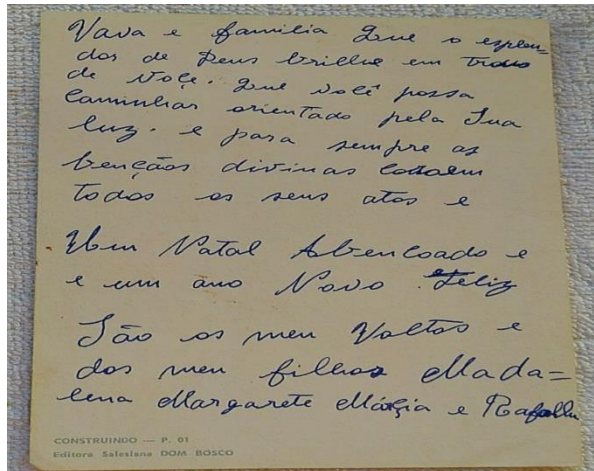 Vava e familia Que o esplen=
dor de Deus brilhe em trono
de você. Que você possa
Caminhar orientado pela Sua
luz. e para sempre as
bençãos divinas coroem
todos os seus atos e
Um Natal Abencoado e
e um ano Novo Feliz
São os meu Voltos e
dos meu filhos Mada=
lena Margarete Márçia e Rafael
CONSTRUINDO — P. 01
Editora Salesiana DOM BOSCO